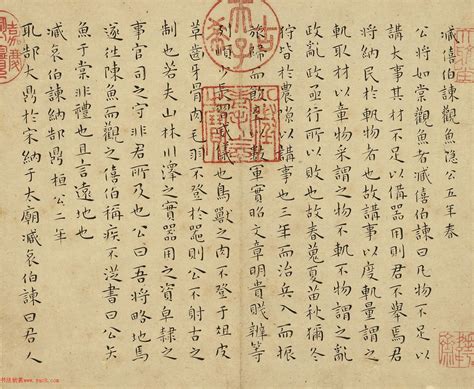 臧僖伯諫觀魚隱公五年春
公將如棠觀魚者臧僖伯諫曰凡物不足以
講大事其材不足以備器用則君不舉焉君
將納民於軌物者也故講事以度軌量謂之
軌取材以章物采謂之物不軌不物謂之亂
政亂政亟行所以敗也故春蒐夏苗秋獮冬
狩皆於農隙以講事也三年而治兵入而振
旅歸而飲至以數軍實昭文章明貴賤辨等
列順少長習威儀也鳥獸之肉不登于俎皮
革齒牙骨角毛羽不登於器則公不射古之
制也若夫山林川澤之實器用之資皁隸之
事官司之守非君所及也公曰吾將略地焉
遂往陳魚而觀之僖伯稱疾不從書曰公矢
魚于棠非禮也且言遠地也
臧哀伯諫納郜鼎 桓公二年
取郜大鼎於宋納于太廟臧哀伯諫曰君人